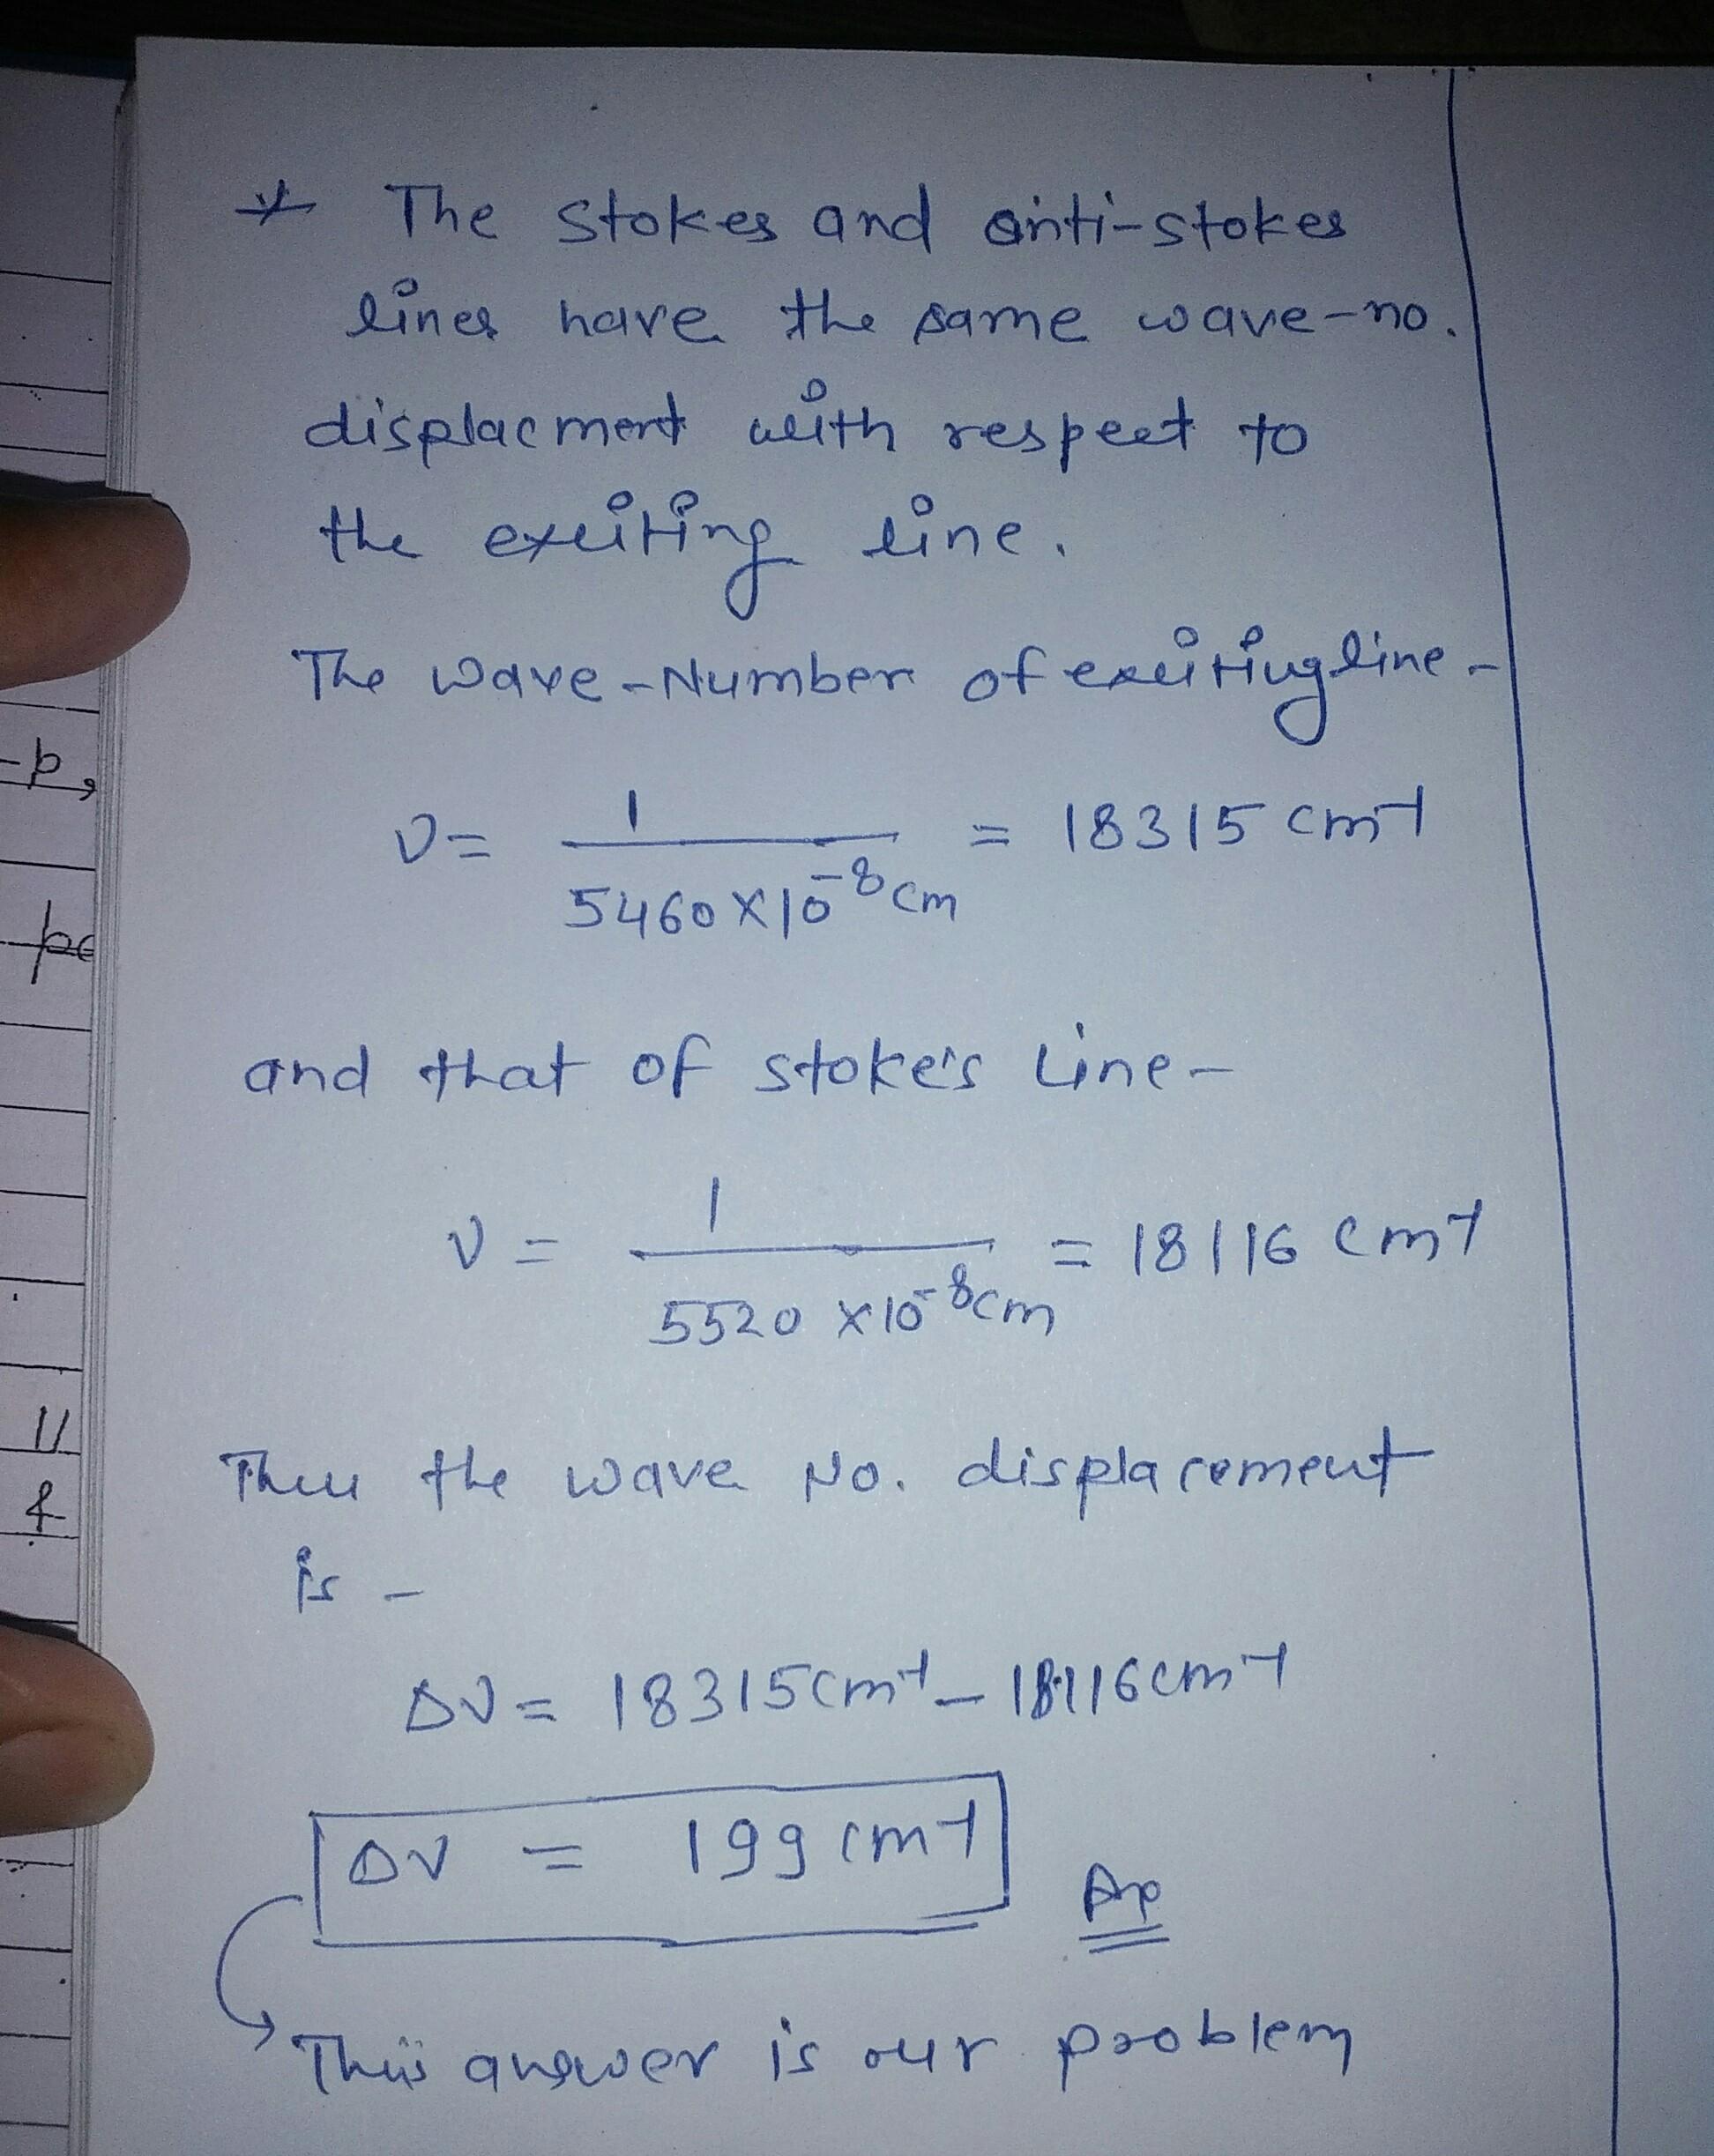 * The Stokes and anti-stokes
lines have the same wave-no.
displacment with respect to
the exciting line.
The wave-Number of exciting line -
ν = 1 / 5460 × 10⁻⁸ cm = 18315 cm⁻¹
and that of stoke's Line -
ν = 1 / 5520 × 10⁻⁸ cm = 18116 cm⁻¹
the wave No. displacement
is -
Δν = 18315 cm⁻¹ - 18116 cm⁻¹
Δν = 199 cm⁻¹
This answer is our problem
-p,
pe
11
&